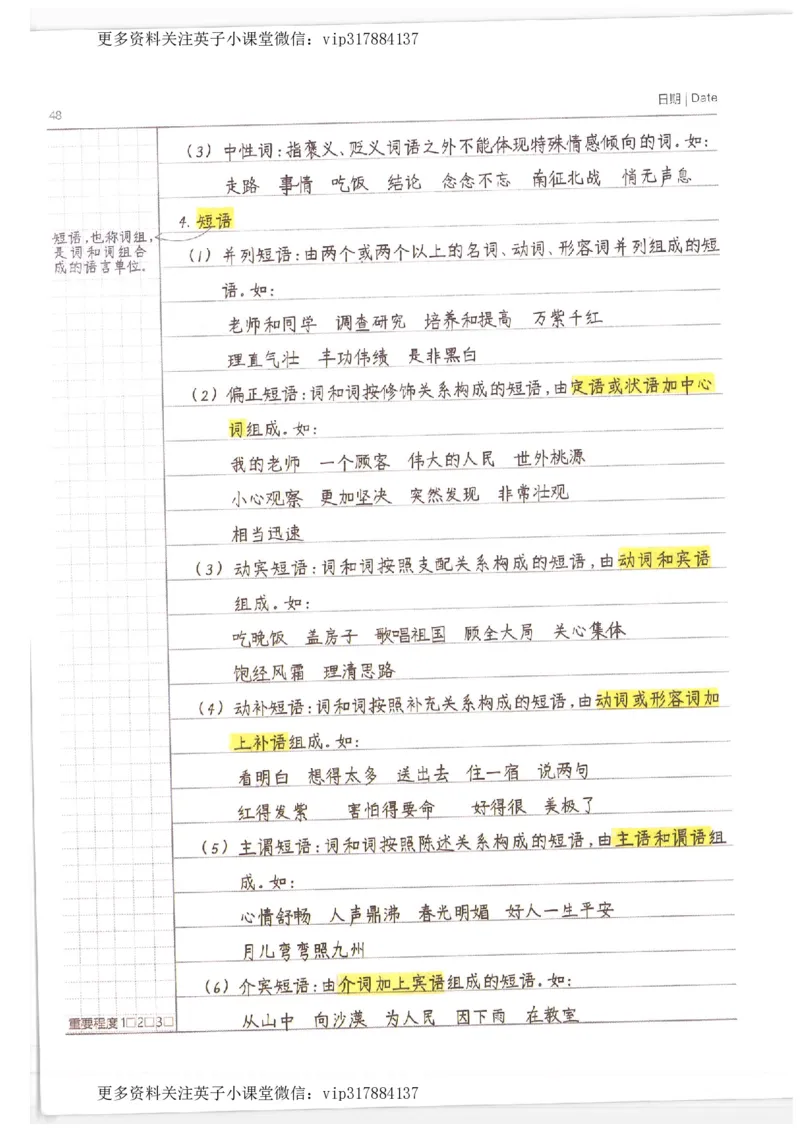 更多资料关注英子小课堂微信：vip317884137
日期 | Date
48
(3) 中性词：指褒义、贬义词语之外不能体现特殊情感倾向的词。如：
走路 事情 吃饭 结论 念念不忘 南征北战 悄无声息
4. 短语
短语，也称词组，
是词和词组合
成的语言单位。
(1) 并列短语：由两个或两个以上的名词、动词、形容词并列组成的短
语。如：
老师和同学 调查研究 培养和提高 万紫千红
理直气壮 丰功伟绩 是非黑白
(2) 偏正短语：词和词按修饰关系构成的短语，由定语或状语加中心
词组成。如：
我的老师 一个顾客 伟大的人民 世外桃源
小心观察 更加坚决 突然发现 非常壮观
相当迅速
(3) 动宾短语：词和词按照支配关系构成的短语，由动词和宾语
组成。如：
吃晚饭 盖房子 歌唱祖国 顾全大局 关心集体
饱经风霜 理清思路
(4) 动补短语：词和词按照补充关系构成的短语，由动词或形容词加
上补语组成。如：
看明白 想得太多 送出去 住一宿 说两句
红得发紫 害怕得要命 好得很 美极了
(5) 主谓短语：词和词按照陈述关系构成的短语，由主语和谓语组
成。如：
心情舒畅 人声鼎沸 春光明媚 好人一生平安
月儿弯弯照九州
(6) 介宾短语：由介词加上宾语组成的短语。如：
从山中 向沙漠 为人民 因下雨 在教室
重要程度 1□2□3□
更多资料关注英子小课堂微信：vip317884137